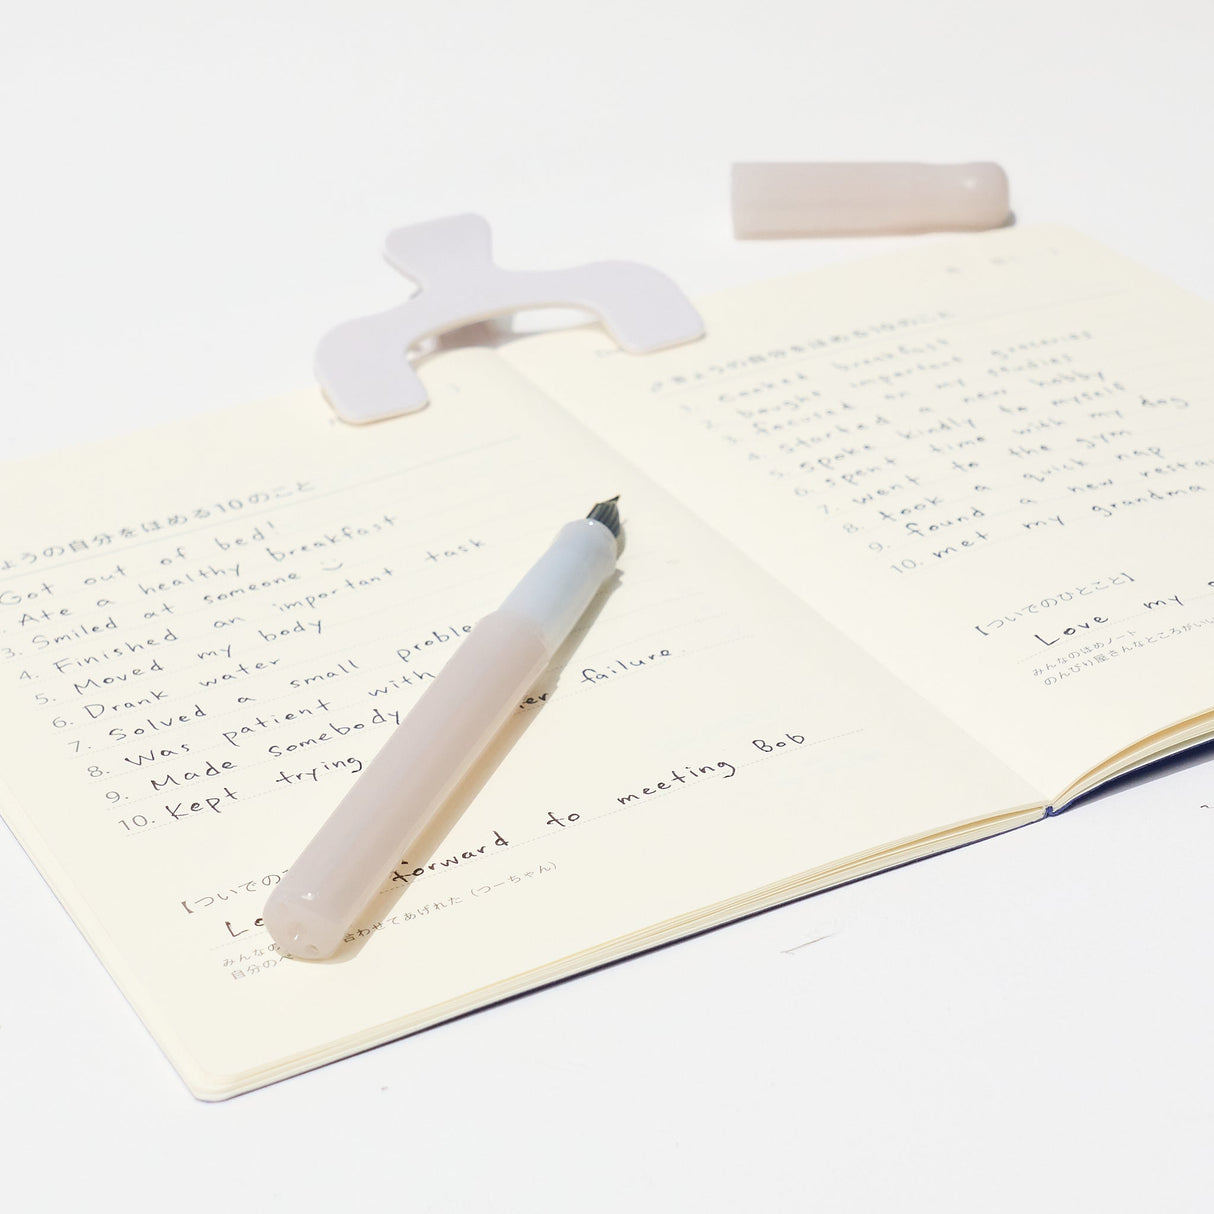 ょうの自分をほめる10のこと
Got out of bed!
Ate a healthy breakfast
3. Smiled at someone
4. Finished an important task
5. Moved my body
6. Drank water
7. Solved a small
8. Was patient with
9. Made somebody
10. Kept trying failure.
【ついでの
forward to meeting Bob
みんなの 合わせてあげれた（つーちゃん）
自分の
きょうの自分をほめる10のこと
1. cooked breakfast
2. bought important groceries
3. focused on my studies
4. started a new hobby
5. spoke kindly to myself
6. spent time with my dog
7. went to the gym
8. took a quick nap
9. found a new
10. met my grandma
【ついでのひとこと】
Love my
みんなのほめノート
のんびり屋さんなところがいい